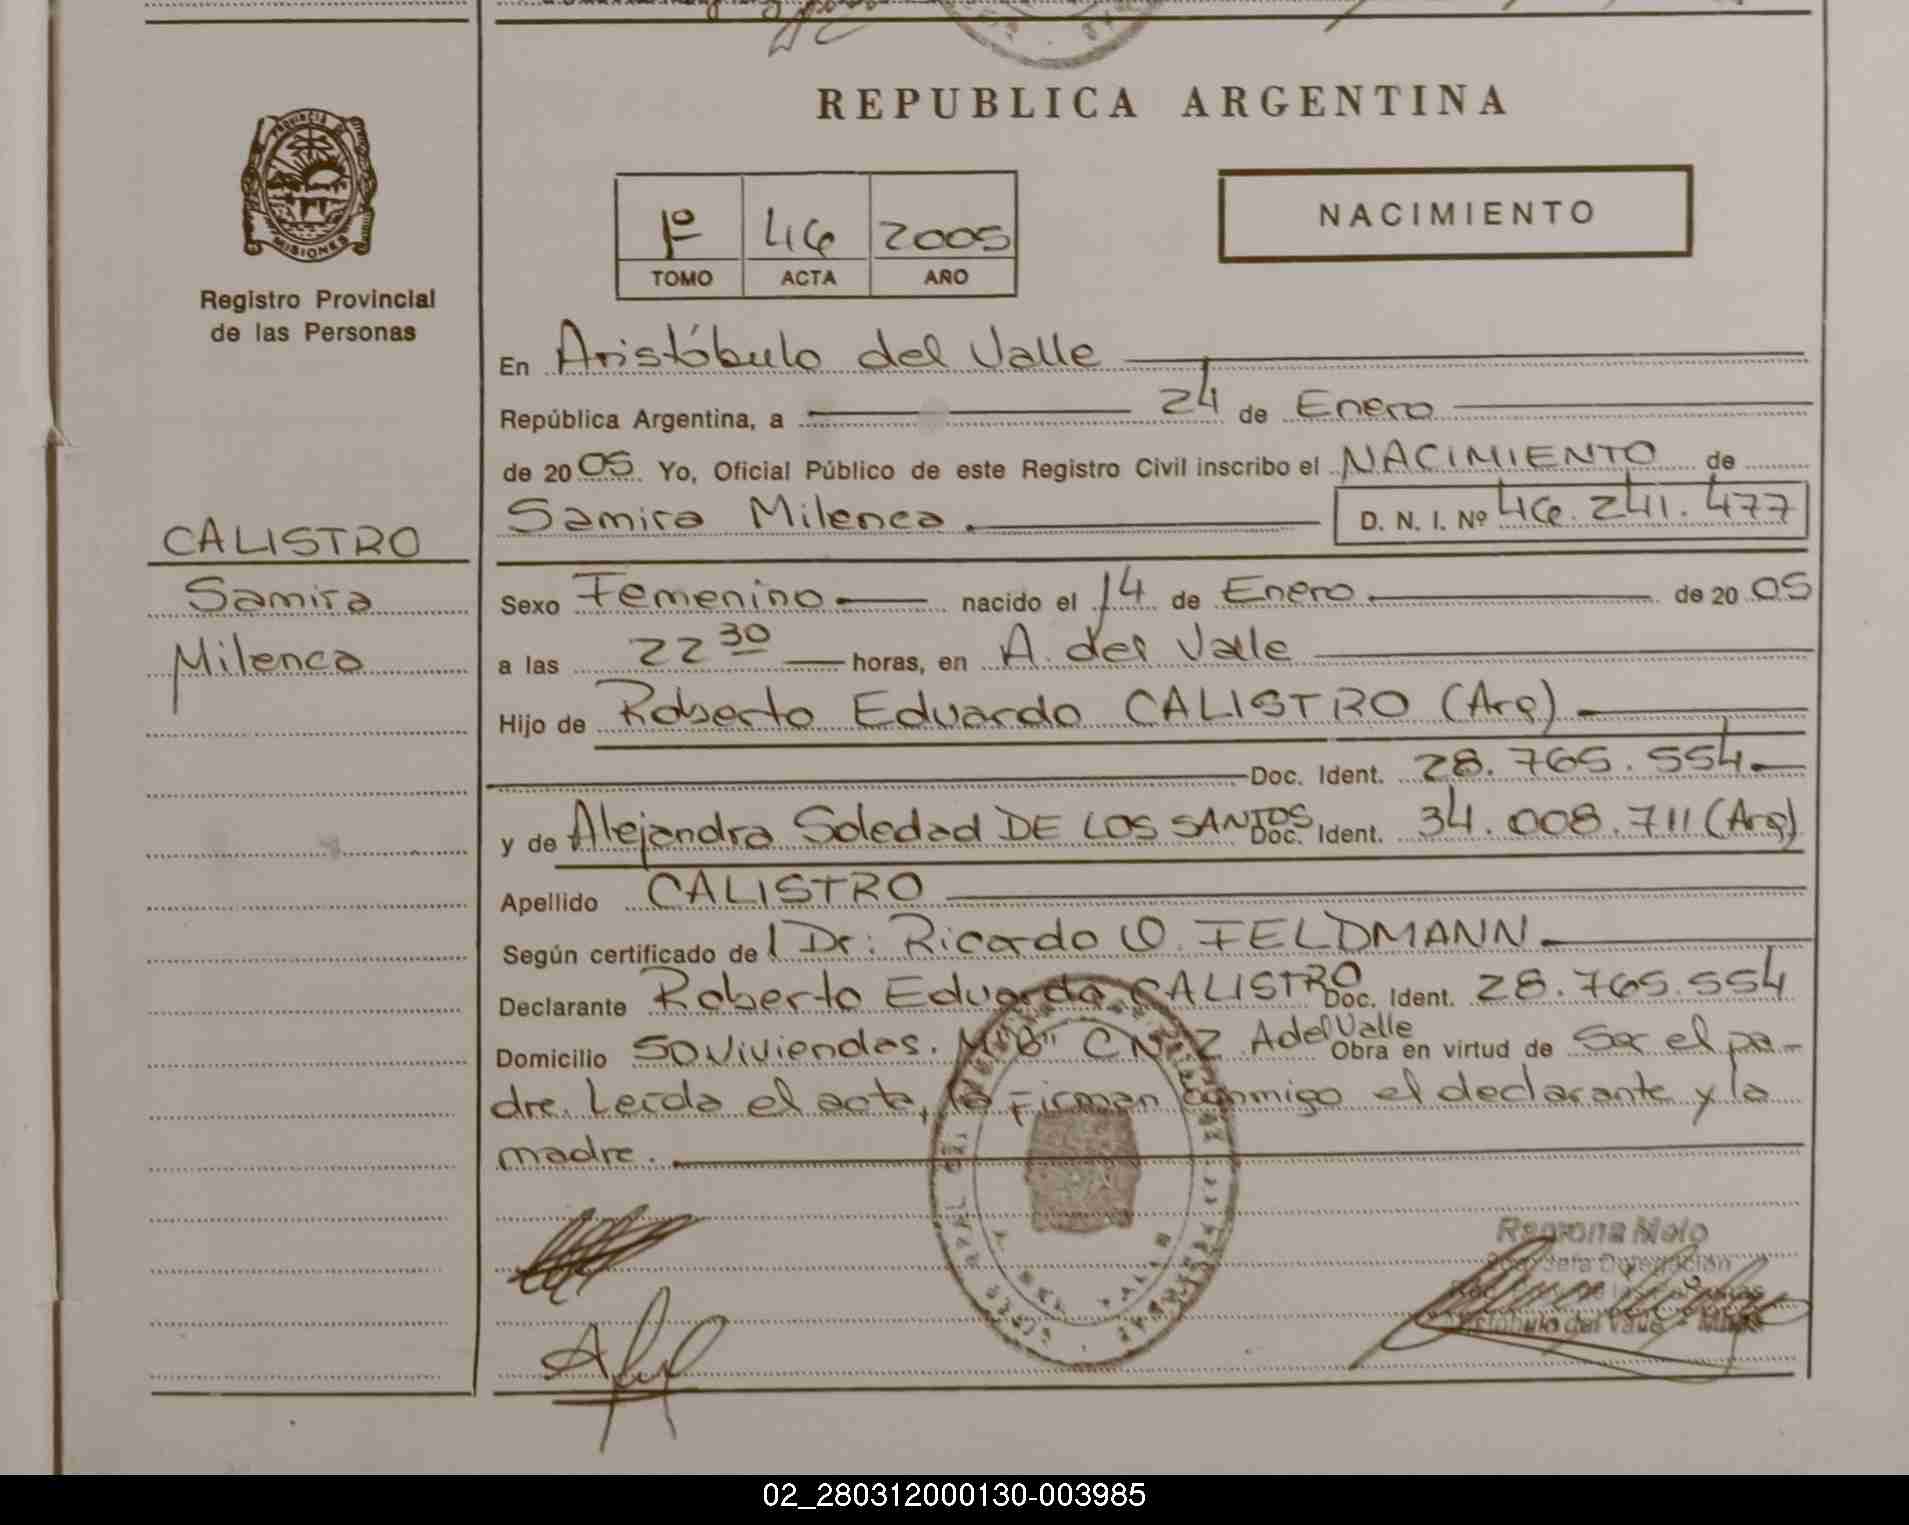 REPUBLICA ARGENTINA
PROVINCIA DE
MISIONES
Registro Provincial
de las Personas
NACIMIENTO
1º 46 2005
TOMO ACTA AÑO
En Aristóbulo del Valle
República Argentina, a 24 de Enero
de 2005 Yo, Oficial Público de este Registro Civil inscribo el NACIMIENTO de
Samira Milenca. D. N. I. Nº 46.241.477
CALISTRO
Samira
Milenca
Sexo Femenino nacido el 14 de Enero de 2005
a las 22 30 horas, en A. del Valle
Hijo de Roberto Eduardo CALISTRO (Arg)
Doc. Ident. 28.765.554
y de Alejandra Soledad DE LOS SANTOS Doc. Ident. 34.008.711 (Arg)
Apellido CALISTRO
Según certificado del Dr: Ricardo O. FELDMANN
Declarante Roberto Eduardo CALISTRO Doc. Ident. 28.765.554
Domicilio 50 Viviendas. M "B" C Nº 2 A del Valle Obra en virtud de Ser el pa-
dre. Leída el acta, la Firman conmigo el declarante y la
madre.
Ramona Melo
Delegación
Aristóbulo del Valle - Mnes
02_280312000130-003985